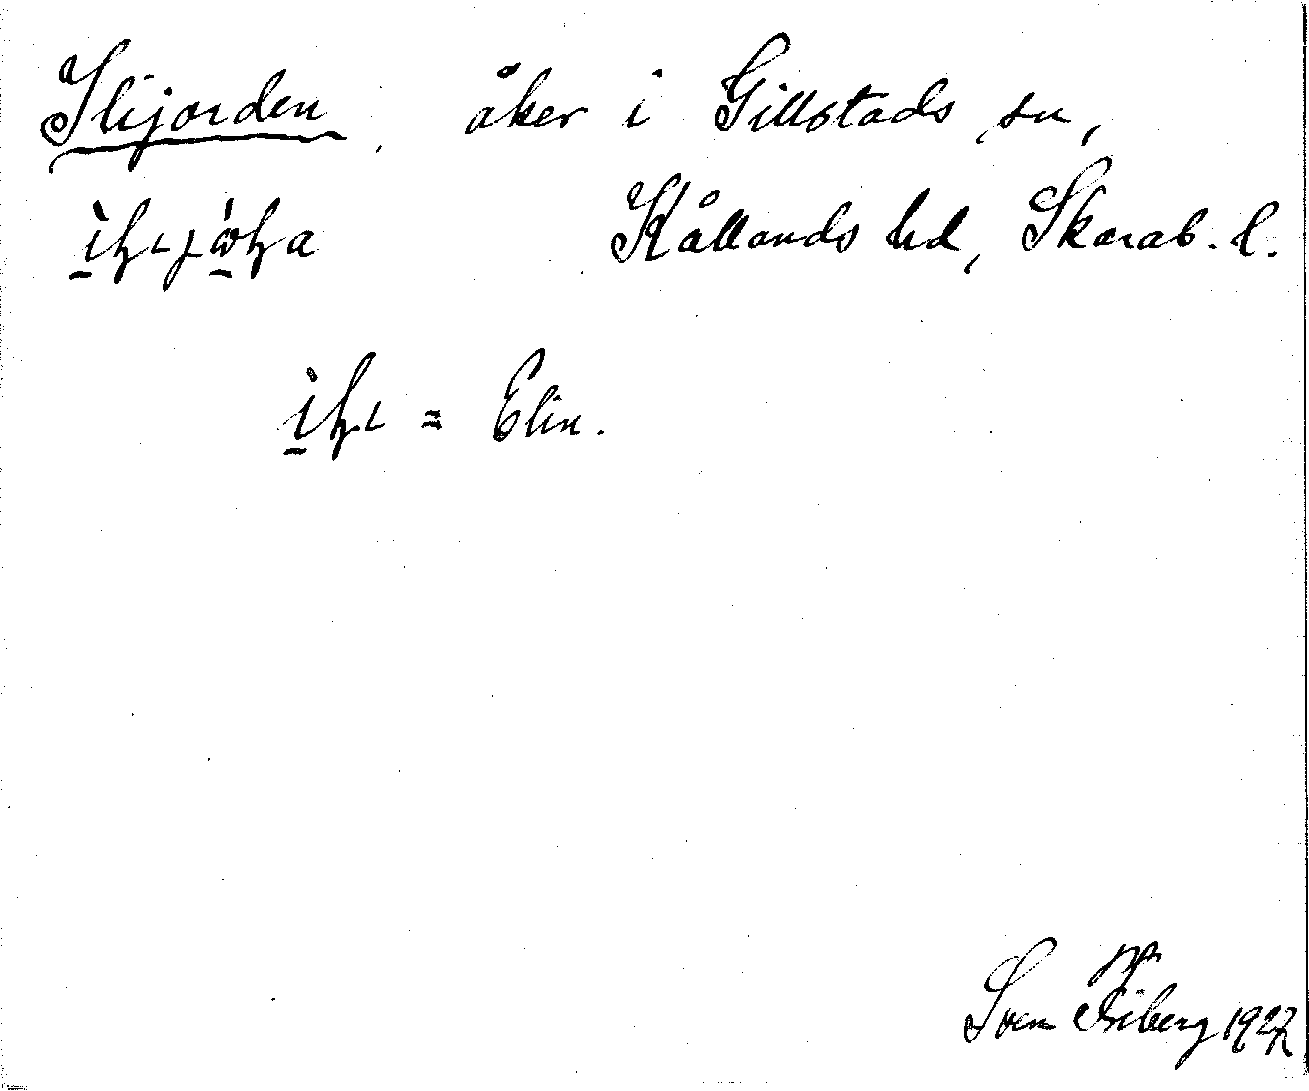 Ilijorden, åker i Gillstads sn,
Kållands hd, Skarab. l.
= Elin.
Sven Friberg 1927